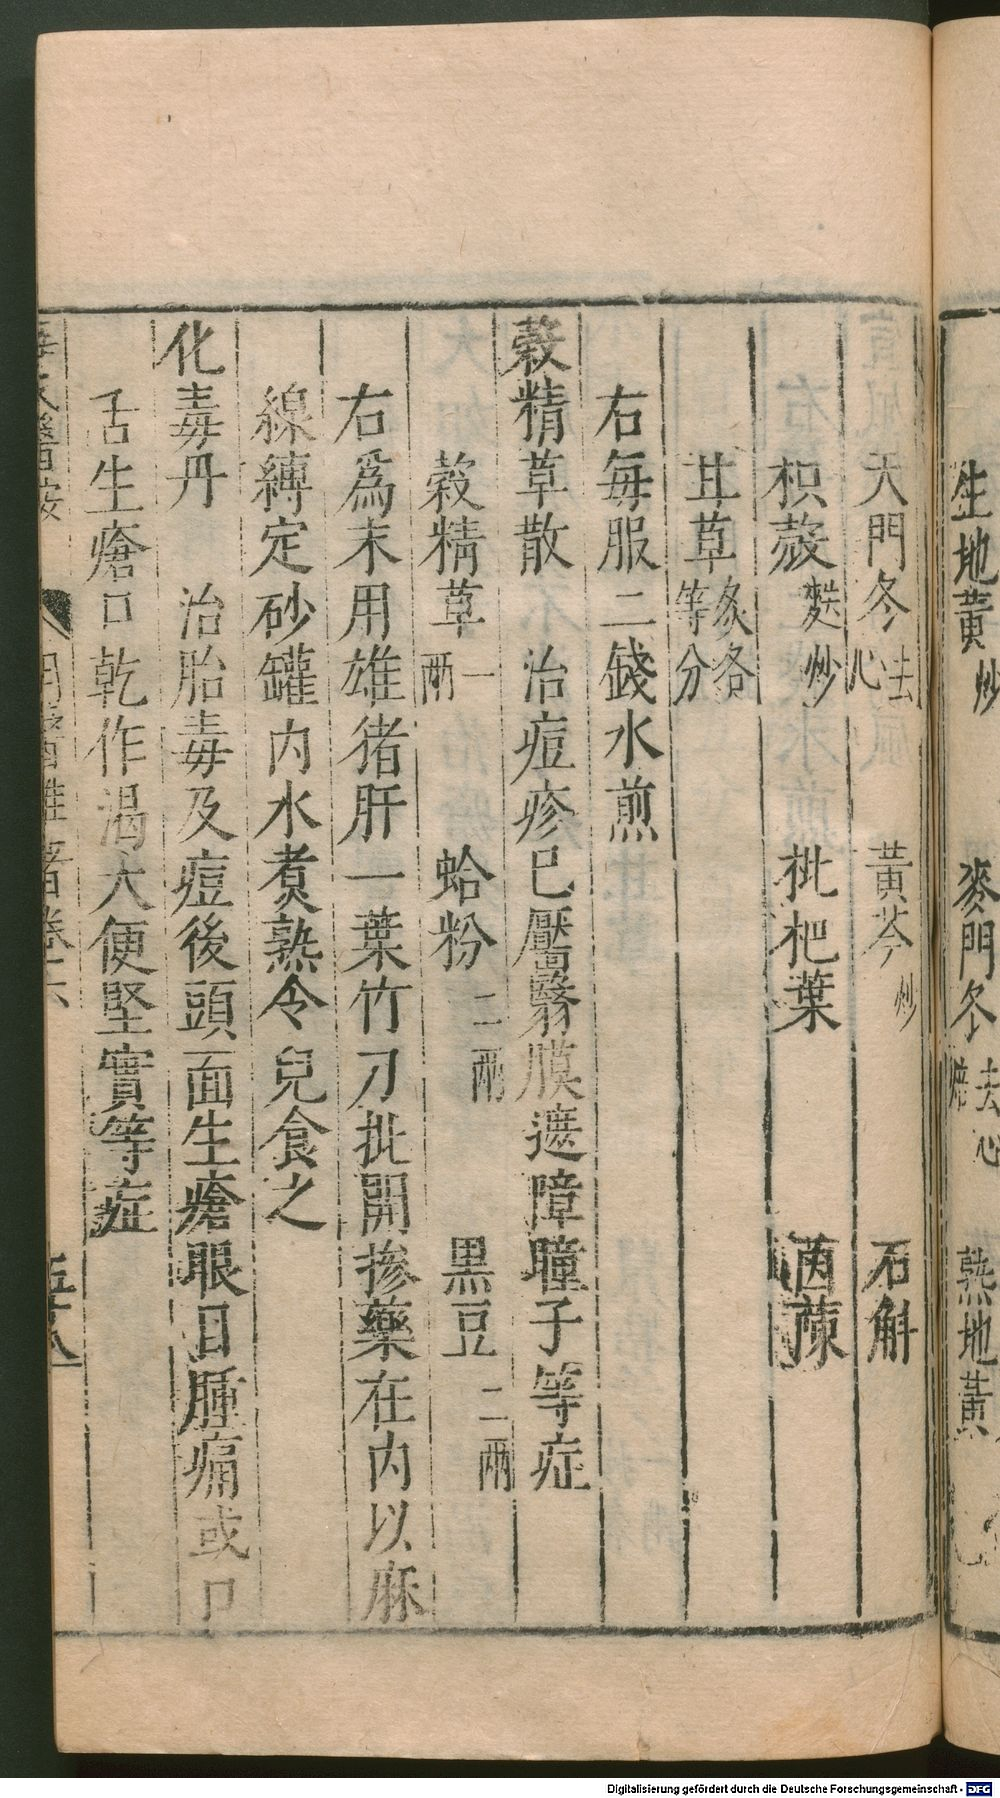 生地黃炒　麥門冬去心焙　熟地黃
天門冬去心　黃芩炒　石斛
枳殼麩炒　枇杷葉　茵蔯
甘草炙各等分
右每服二錢水煎
穀精草散　治痘疹已靨翳膜遮障瞳子等症
穀精草一兩　蛤粉二兩　黑豆二兩
右爲末用雄猪肝一葉竹刀批開摻藥在內以麻
線縛定砂罐內水煑熟令兒食之
化毒丹　治胎毒及痘後頭面生瘡眼目腫痛或口
舌生瘡口乾作渴大便堅實等症
五十八
Digitalisierung gefördert durch die Deutsche Forschungsgemeinschaft - DFG